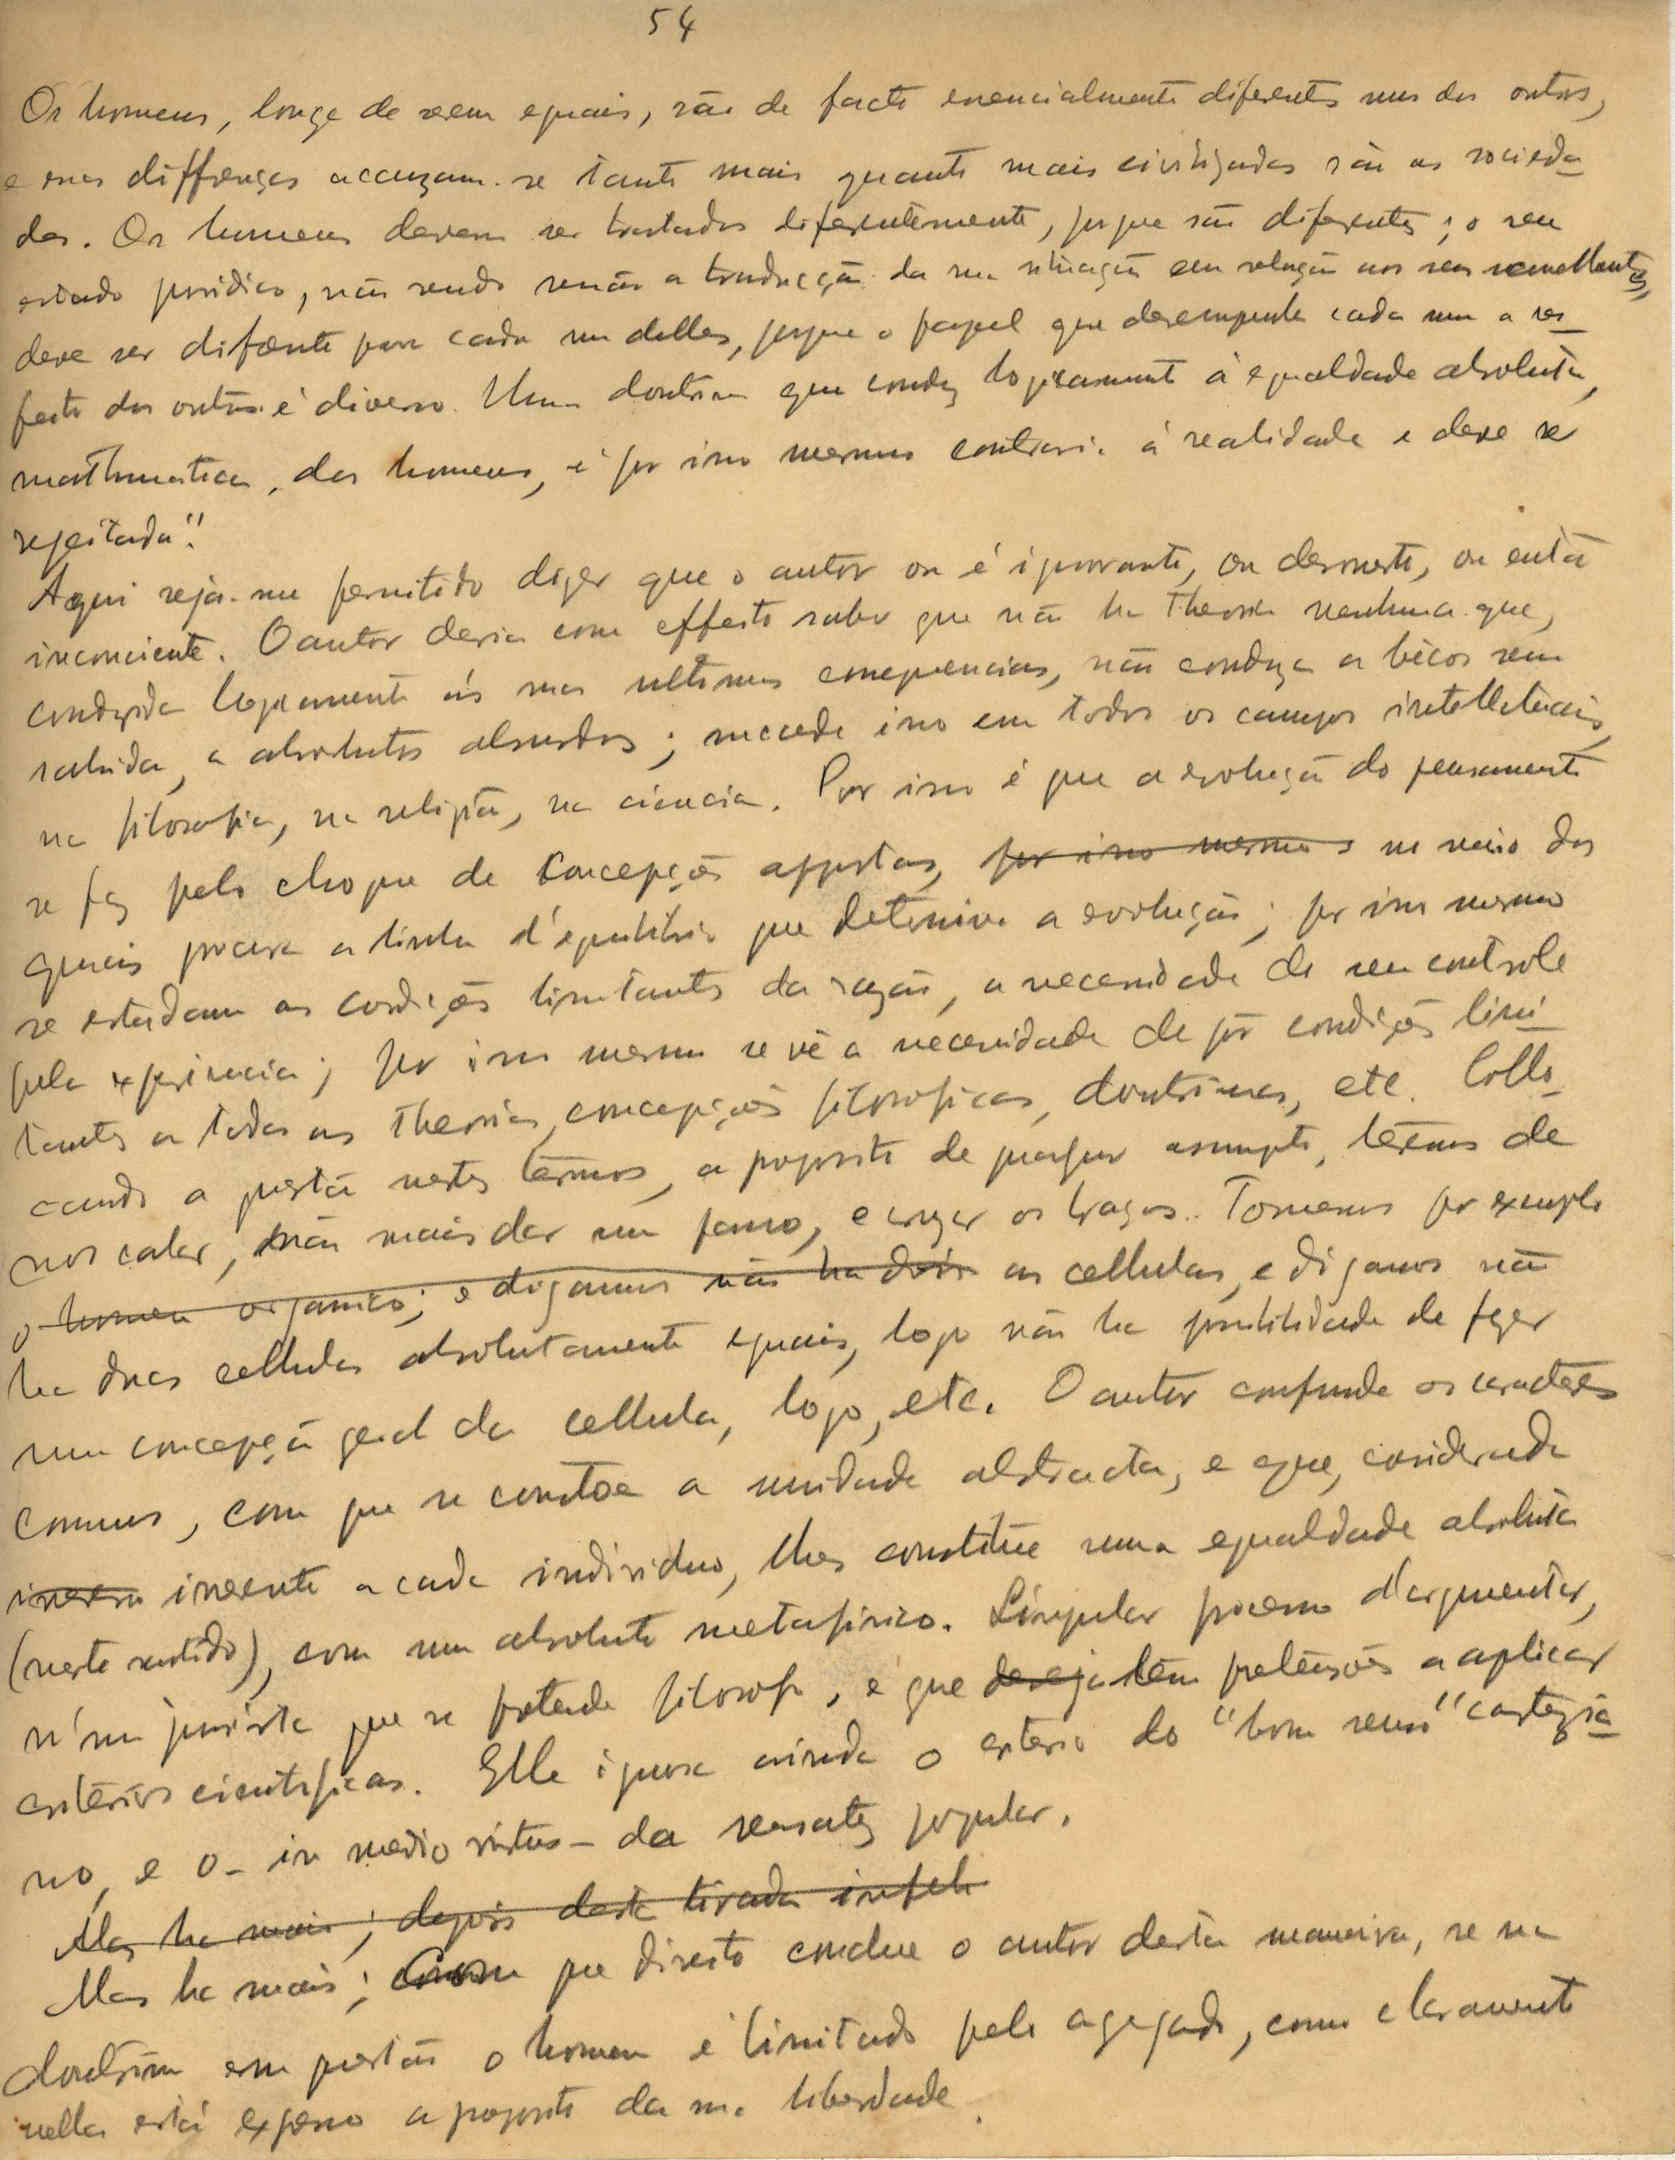 54
Os homens, longe de serem eguais, são de facto essencialmente diferentes uns dos outros,
e essas differenças accuzam-se tanto mais quanto mais civilizadas são as socieda-
des. Os homens devem ser tratados diferentemente, porque são diferentes; o seu
estado juridico, não sendo senão a traducção da sua situação em relação aos seus semelhantes,
deve ser diferente para cada um delles, porque o papel que desempenha cada um a res-
peito dos outros é diverso. Uma doutrina que conduz logicamente á egualdade absoluta,
mathematica, dos homens, é por isso mesmo contraria á realidade e deve ser
regeitada".
Aqui seja-me permitido dizer que o autor ou é ignorante, ou deshonesto, ou então
inconciente. O autor devia com effeito saber que não ha theoria nenhuma que,
conduzida logicamente ás suas ultimas consequencias, não conduza a bêcos sem
sahida, a absolutos absurdos; succede isso em todos os campos intelletuais,
na filosofia, na religião, na ciencia. Por isso é que a evolução do pensamento
se fez pelo choque de concepções oppostas, por isso mesmo s no meio das
quais procura a linha d'equilibrio que determina a evolução; por isso mesmo
se estudam as condições limitantes da razão, a necessidade de seu controle
pela experiencia; por isso mesmo se vê a necessidade de pôr condições limi-
tantes a todas as theorias, concepções filosoficas, doutrinas, etc. Collo-
cando a questão nestes têrmos, a proposito de qualquer assumpto, têmos de
nos calar, não mais dar um passo, e cruzar os braços. Tomemos por exemplo
o homem organico; e digamos não ha dois as cellulas, e digamos não
ha duas cellulas absolutamente eguais, logo não ha possibilidade de fazer
uma concepção geral da cellula, logo, etc. O autor confunde os caractéres
comuns, com que se constróe a unidade abstracta, e que, considerada
inherente a cada individuo, lhes constitúe uma egualdade absoluta
(neste sentido), com um absoluto metafisico. Singular processo d'argumentar,
n'um jurista que se pretende filosofo, e que deseja têm pretensões a aplicar
critérios cientificos. Elle ignora ainda o criterio do "bom senso" cartezia-
no, e o - in medio virtus - da sensatez popular.
Mas ha mais; depois desta tirada infeli
Mas ha mais; com que direito conclue o autor desta maneira, se na
doutrina em questão o homem é limitado pelo aggregado, como claramente
nella está expresso a proposito da sua liberdade.